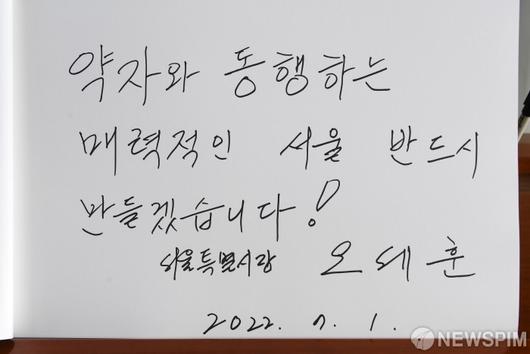 약자와 동행하는
매력적인 서울 반드시
만들겠습니다!
서울특별시장 오세훈
2022. 7. 1.
NEWSPIM